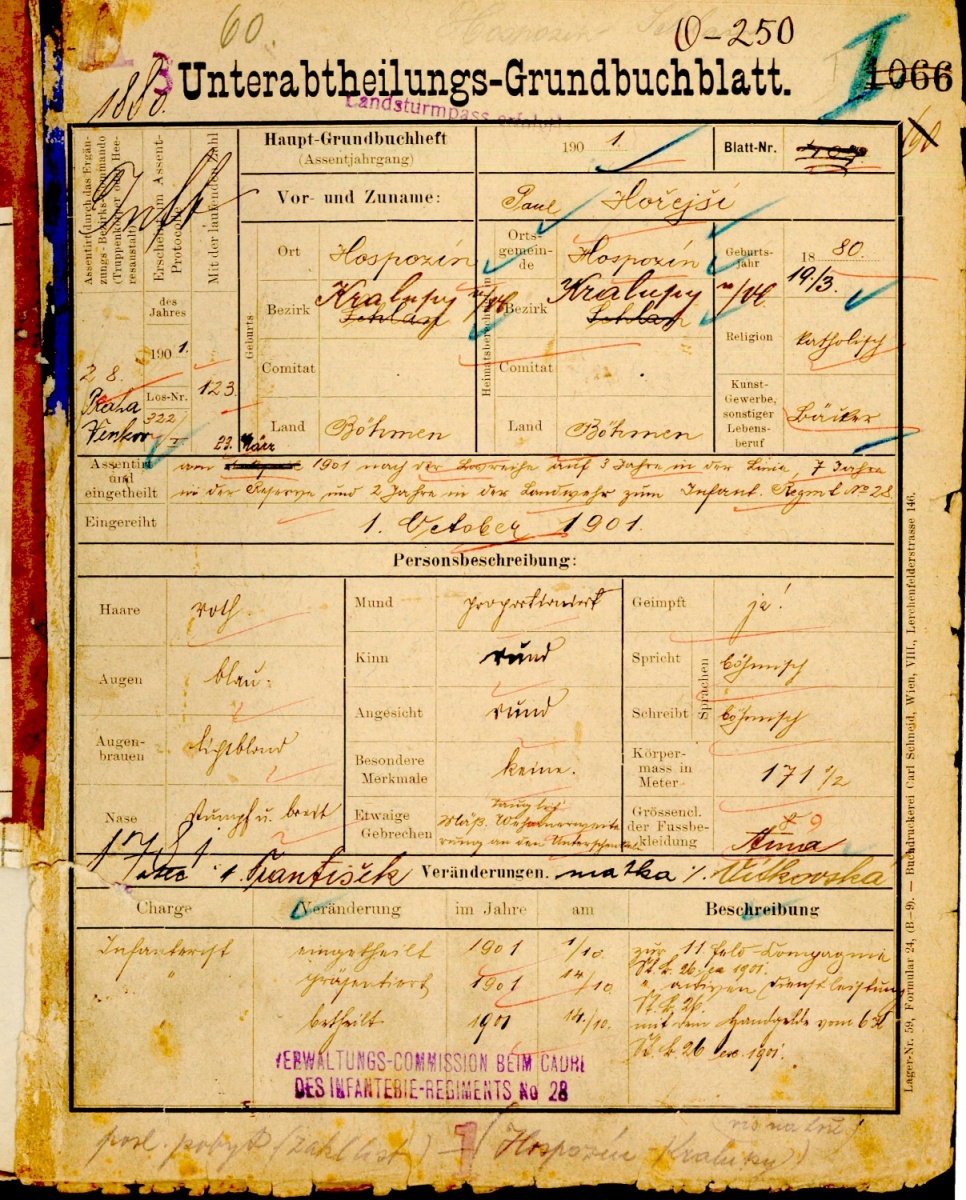 60.
O-250
1880.
3
Unterabtheilungs-Grundbuchblatt.
1066
Landsturmpass
Assentirt durch das Ergän-
zungs-Bezirks-Commando
(Truppenkörper oder Hee-
resanstalt)
Erscheint im Assent-
Protocolle
Mit der laufenden Zahl
des
Jahres
1901.
28.
Praha
Venkov
Los-Nr.
322
I
123
Haupt-Grundbuchheft
(Assentjahrgang)
1901.
Blatt-Nr.
Vor- und Zuname:
Paul Hořejší
Geburts
Ort
Hospozín
Bezirk
Kralupy n/Vl.
Schlan
Comitat
Land
Böhmen
Heimatsberechtigt in
Orts-
gemein-
de
Hospozín
Bezirk
Kralupy n/Vl.
Schlan
Comitat
Land
Böhmen
Geburts-
jahr
1880.
19/3.
Religion
katholisch
Kunst-
Gewerbe,
sonstiger
Lebens-
beruf
Bäcker
Assentirt
und
eingetheilt
23. März
am 1901 nach der Losreihe auf 3 Jahre in der Linie, 7 Jahre
in der Reserve und 2 Jahre in der Landwehr zum Infant. Regmt No 28
Eingereiht
1. October 1901.
Personsbeschreibung:
Haare
roth
Augen
blau
Augen-
brauen
lichtblond
Nase
stumpf u. breit
Mund
proportionirt
Kinn
rund
Angesicht
rund
Besondere
Merkmale
keine.
Etwaige
Gebrechen
tauglich
rung an den Unterschenkel
Geimpft
ja!
Sprachen
Spricht
böhmisch
Schreibt
böhmisch
Körper-
mass in
Meter
171 1/2
Grössencl.
der Fussbe-
kleidung
9
Anna
František
Veränderungen.
matka
Vítkovská
Charge
Veränderung
im Jahre
am
Beschreibung
Infanterist eingetheilt 1901 1/10. zur 11 Feld-Compagnie
" präsentirt 1901 14/10 activen Dienstleistung
betheilt 1901 14./10. mit dem Handgelde vom 6 K
VERWALTUNGS-COMMISSION BEIM CADRE
DES INFANTERIE-REGIMENTS No 28
Lager-Nr. 59, Formular 24, (B—9). — Buchdruckerei Carl Schneid, Wien, VIII., Lerchenfelderstrasse 146.
1
posl. pobyt (Zahl list) — (Hospozín Kralupy)